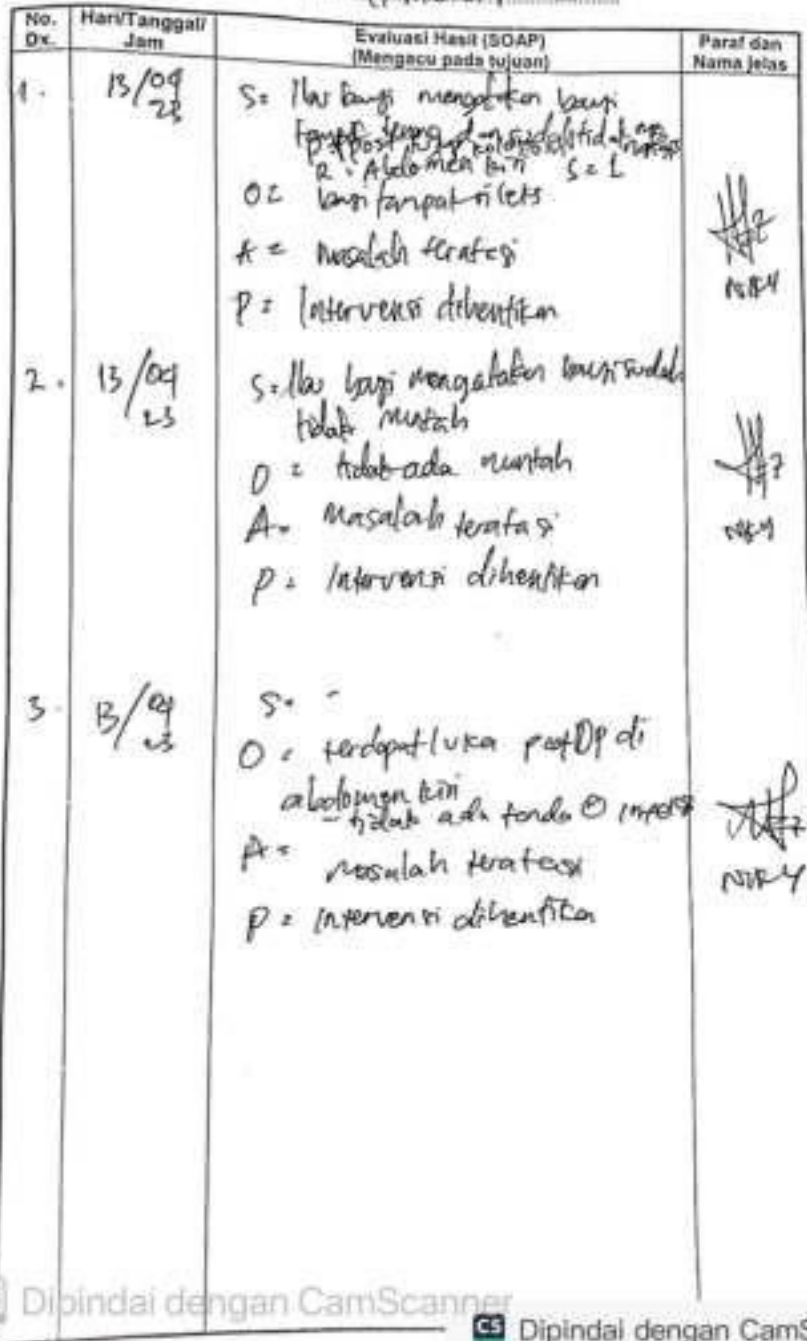 No. Dx.
Hari/Tanggal/ Jam
Evaluasi Hasil (SOAP)
(Mengacu pada tujuan)
Paraf dan Nama jelas
1.
13/09 23
S = Ibu bayi mengatakan bayi
tampak tenang dan sudah tidak
P : post tutup kolostomi
R : Abdomen kiri S = 1
O = bayi tampak rileks
A = Masalah teratasi
P = Intervensi dihentikan
2.
13/09 23
S = Ibu bayi mengatakan bayi sudah
tidak muntah
O = tidak ada muntah
A = Masalah teratasi
P = Intervensi dihentikan
3.
13/09 23
S = -
O = terdapat luka post Op di
abdomen kiri
- tidak ada tanda
A = masalah teratasi
P = intervensi dihentikan
Dipindai dengan CamScanner
CS Dipindai dengan CamS